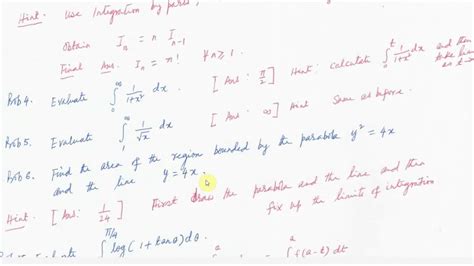 Hint. Use Integration by parts,
Obtain I_n = n I_{n-1}
Final Ans. I_n = n! ∀ n ≥ 1.
Prob 4. Evaluate ∫_0^∞ 1/(1+x²) dx. [Ans: π/2] Hint: calculate ∫_0^t 1/(1+x²) dx and then take
as t →
Prob 5. Evaluate ∫_1^∞ 1/√x dx [Ans: ∞] Hint Same as before.
Prob 6. Find the area of the region bounded by the parabola y² = 4x
and the line y = 4x.
Hint. [Ans: 1/24] First draw the parabola and the line and then
fix up the limits of integration
Evaluate ∫^{π/4} log(1 + tanθ) dθ. ∫^a = ∫^a f(a-t) dt